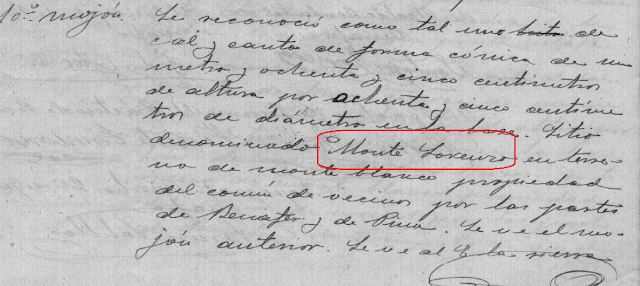 10.º mojón. Se reconoció como tal uno hito de
cal y canto de forma cónica de un
metro y ochenta y cinco centímetros
de altura por ochenta y cinco centíme
tros de diámetro en la base. Sitio
denominado Monte Lorenzo en terre-
no de monte blanco propiedad
del común de vecinos por las partes
de Benafer y de Pina. Se ve el mo-
jón anterior. Se ve al E la sierra